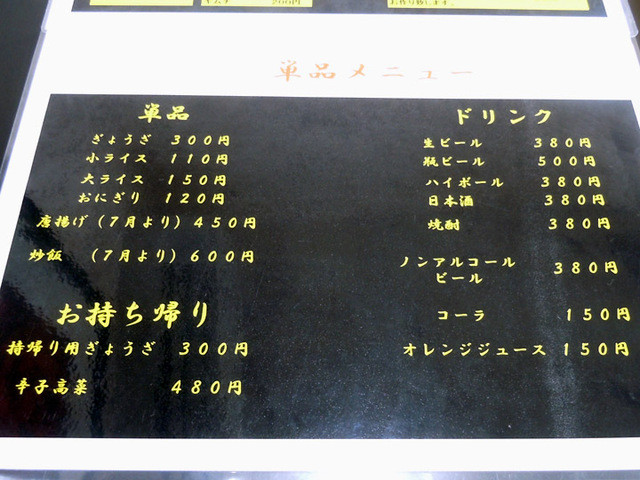 キムチ 200円
お作り致します。
単品メニュー
単品
ぎょうざ 300円
小ライス 110円
大ライス 150円
おにぎり 120円
唐揚げ(7月より)450円
炒飯 (7月より)600円
お持ち帰り
持帰り用ぎょうざ 300円
辛子高菜 480円
ドリンク
生ビール 380円
瓶ビール 500円
ハイボール 380円
日本酒 380円
焼酎 380円
ノンアルコール
ビール 380円
コーラ 150円
オレンジジュース 150円